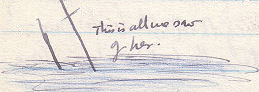 This is all we saw
of her.